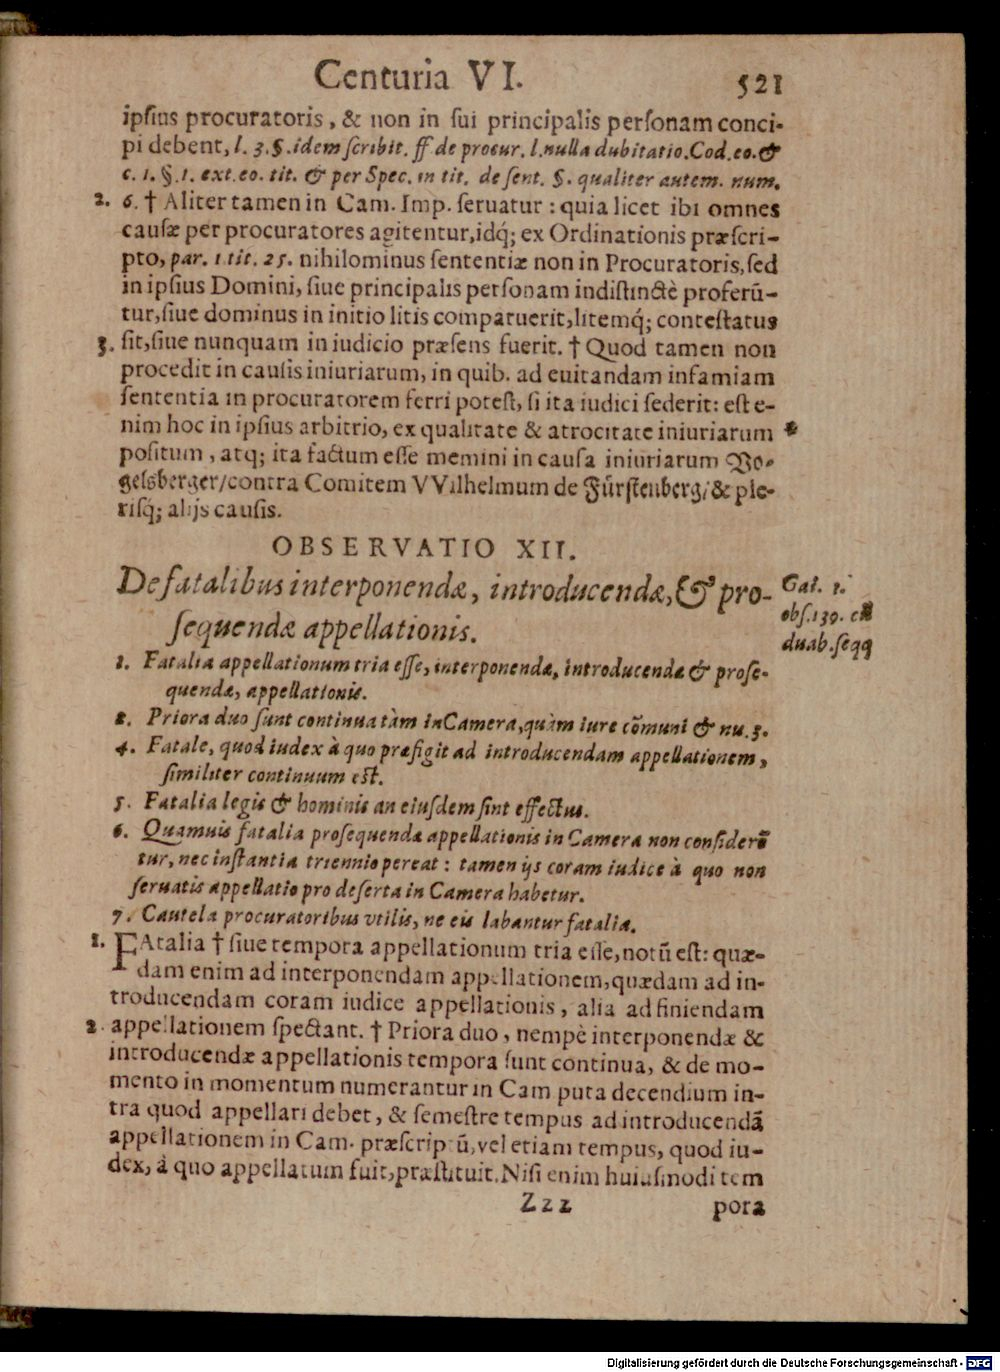 Centuria VI. 521
ipſius procuratoris, & non in ſui principalis perſonam conci-
pi debent, l. 3. §. idem ſcribit. ff de procur. l. nulla dubitatio. Cod. eo. &
c. 1. §. 1. ext. eo. tit. & per Spec. in tit. de ſent. §. qualiter autem. num.
2. 6. † Aliter tamen in Cam. Imp. ſeruatur: quia licet ibi omnes
cauſæ per procuratores agitentur, idq́; ex Ordinationis præſcri-
pto, par. 1 tit. 25. nihilominus ſententiæ non in Procuratoris, ſed
in ipſius Domini, ſiue principalis perſonam indiſtinctè proferū-
tur, ſiue dominus in initio litis comparuerit, litemq́; conteſtatus
3. ſit, ſiue nunquam in iudicio præſens fuerit. † Quod tamen non
procedit in cauſis iniuriarum, in quib. ad euitandam infamiam
ſententia in procuratorem ferri poteſt, ſi ita iudici ſederit: eſt e-
nim hoc in ipſius arbitrio, ex qualitate & atrocitate iniuriarum
poſitum, atq; ita factum eſſe memini in cauſa iniuriarum Vo-
gelsberger/contra Comitem VVilhelmum de Fürſtenberg/& ple-
riſq́; alijs cauſis.
OBSERVATIO XII.
De fatalibus interponendæ, introducendæ, & pro-
ſequendæ appellationis.
Gat. 1.
obſ. 139. cū
duab. ſeqq
1. Fatalia appellationum tria eſſe, interponendæ, introducendæ & proſe-
quendæ, appellationis.
2. Priora duo ſunt continua tàm in Camera, quàm iure cōmuni & nu. 3.
4. Fatale, quod iudex à quo præfigit ad introducendam appellationem,
ſimiliter continuum eſt.
5. Fatalia legis & hominis an eiuſdem ſint effectus.
6. Quamuis fatalia proſequendæ appellationis in Camera non conſiderē
tur, nec inſtantia triennio pereat: tamen ijs coram iudice à quo non
ſeruatis appellatio pro deſerta in Camera habetur.
7. Cautela procuratoribus vtilis, ne eis labantur fatalia.
1. FAtalia † ſiue tempora appellationum tria eſſe, notū eſt: quæ-
dam enim ad interponendam appellationem, quædam ad in-
troducendam coram iudice appellationis, alia ad finiendam
2. appellationem ſpectant. † Priora duo, nempè interponendæ &
introducendæ appellationis tempora ſunt continua, & de mo-
mento in momentum numerantur in Cam puta decendium in-
tra quod appellari debet, & ſemeſtre tempus ad introducendā
appellationem in Cam. præſcriptū, vel etiam tempus, quod iu-
dex, à quo appellatum fuit, præſtituit. Niſi enim huiuſmodi tem
Zzz pora
Digitalisierung gefördert durch die Deutsche Forschungsgemeinschaft - DFG